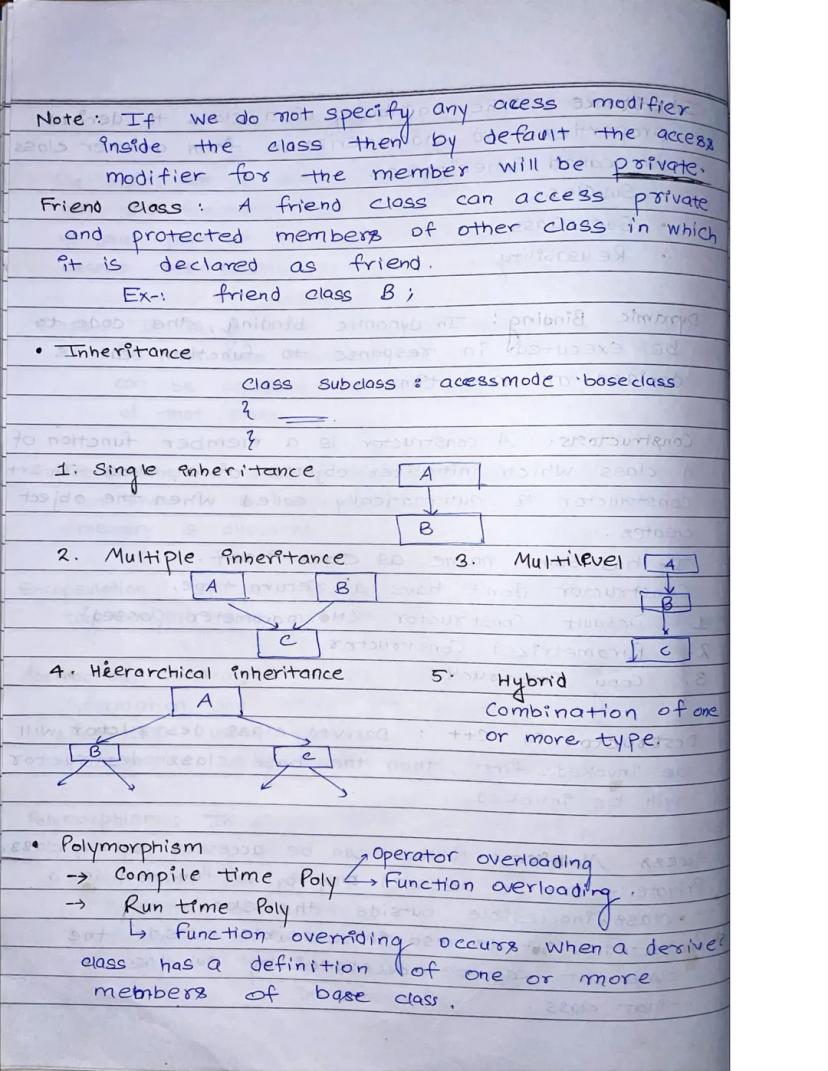 Note : If we do not specify any acess modifier
inside the class then by default the access
modifier for the member will be private.
Friend class : A friend class can access private
and protected members of other class in which
it is declared as friend.
Ex-: friend class B ;
• Inheritance
class subclass : acessmode baseclass
{ ___
}
1. Single inheritance
A
B
2. Multiple inheritance 3. Multilevel
A B
C
A
B
C
4. Hierarchical inheritance 5. Hybrid
A
B C
Combination of one
or more type.
• Polymorphism
→ Compile time Poly → Operator overloading
→ Function overloading.
→ Run time Poly
↳ Function overriding occurs when a derive
class has a definition of one or more
members of base class.